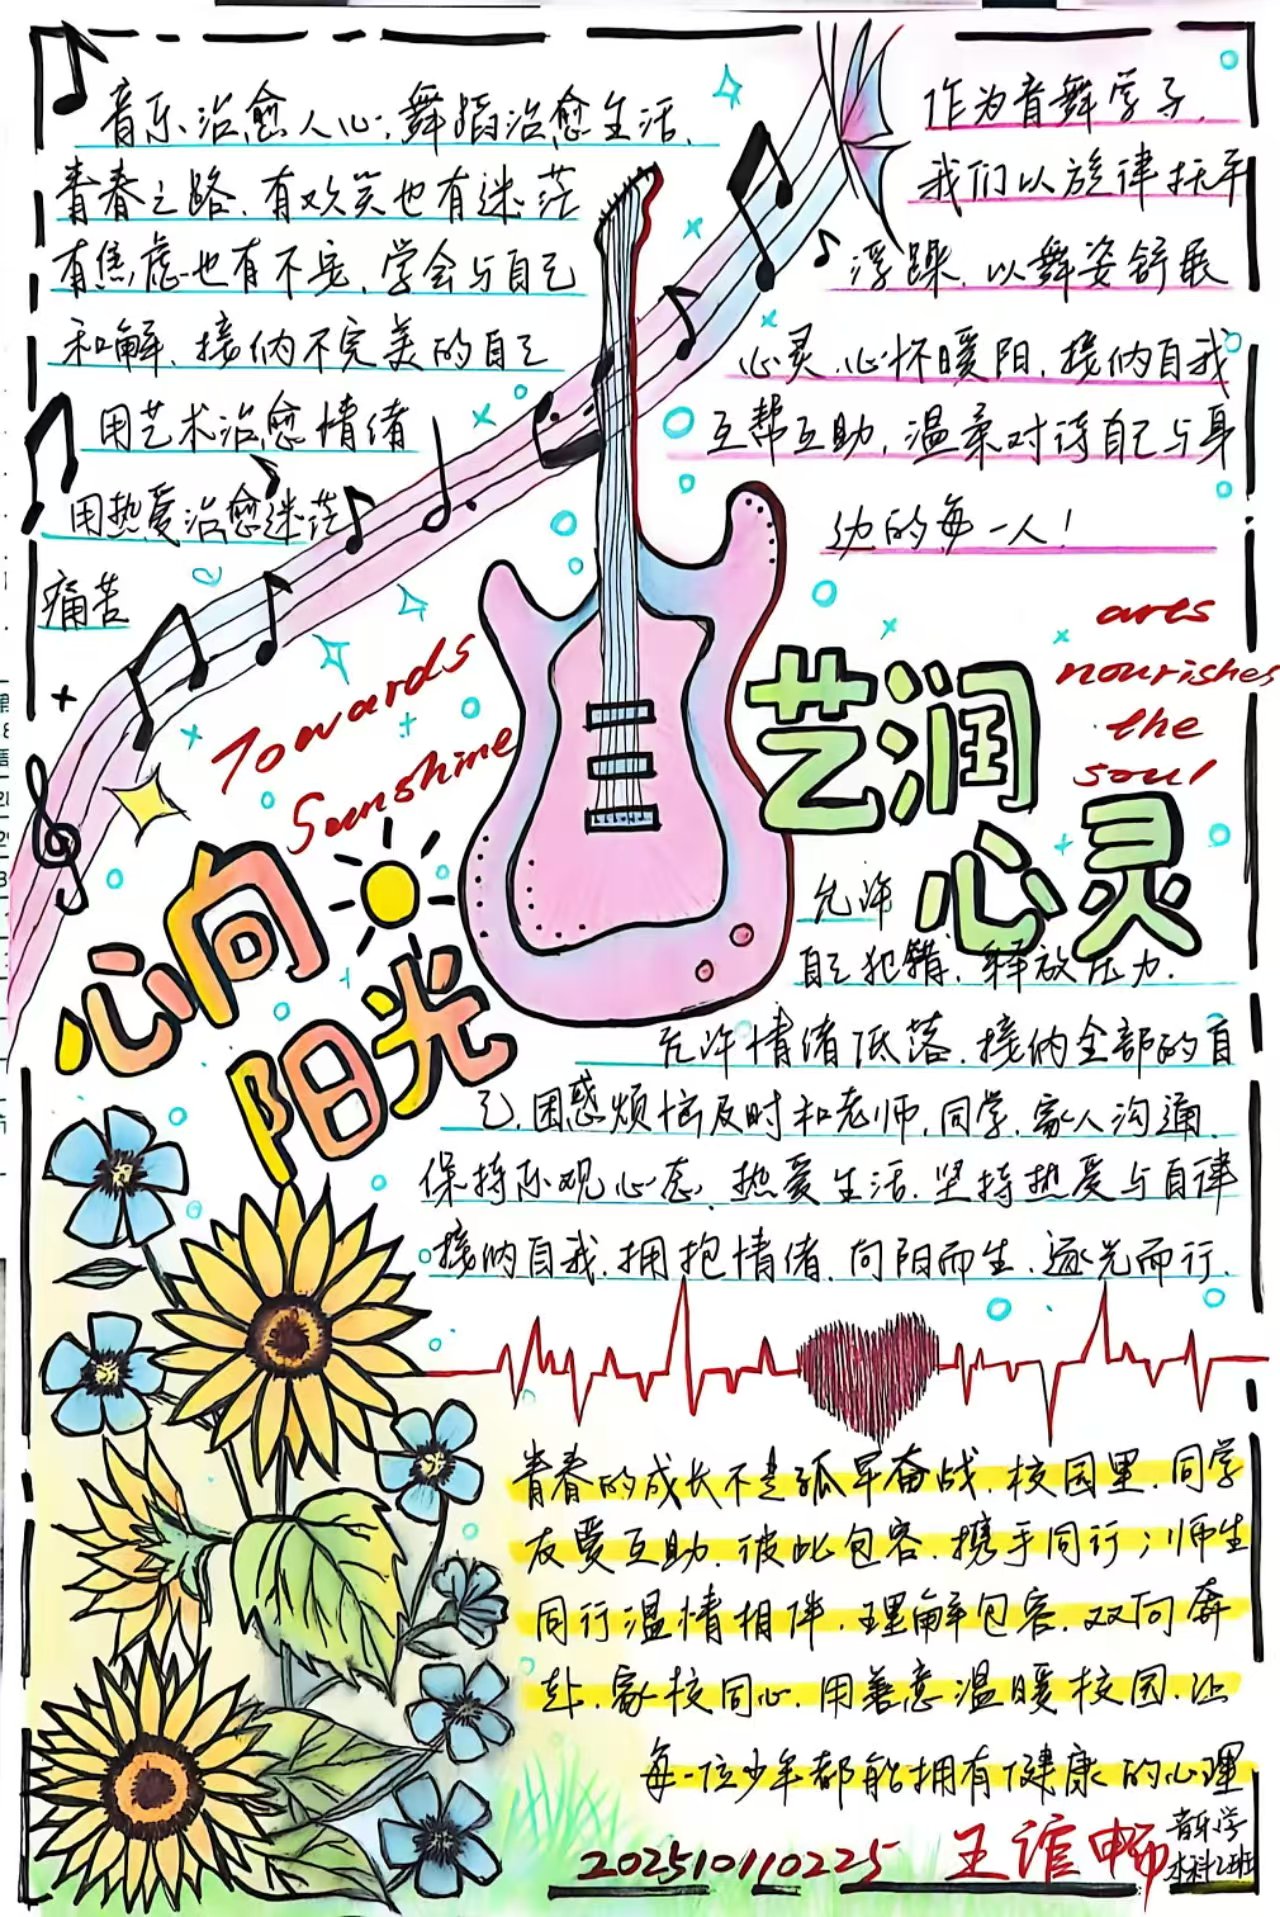 音乐治愈人心,舞蹈治愈生活,
青春之路,有欢笑也有迷茫
有焦虑也有不安,学会与自己
和解,接纳不完美的自己
用艺术治愈情绪
用热爱治愈迷茫
痛苦
作为音舞学子,
我们以旋律抚平
浮躁,以舞姿舒展
心灵,心怀暖阳,接纳自我
互帮互助,温柔对待自己与身
边的每一人!
Towards
Sunshine
心向
阳光
arts
nourishes
the
soul
艺润
心灵
允许
自己犯错,释放压力,
允许情绪低落,接纳全部的自
己,困惑烦恼及时和老师,同学,家人沟通,
保持乐观心态,热爱生活,坚持热爱与自律
接纳自我,拥抱情绪,向阳而生,逐光而行,
青春的成长不是孤军奋战,校园里,同学
友爱互助,彼此包容,携手同行;师生
同行温情相伴,理解包容,双向奔
赴,家校同心,用善意温暖校园,让
每一位少年都能拥有健康的心理
202510110225
王谊申
音乐学
本科2班